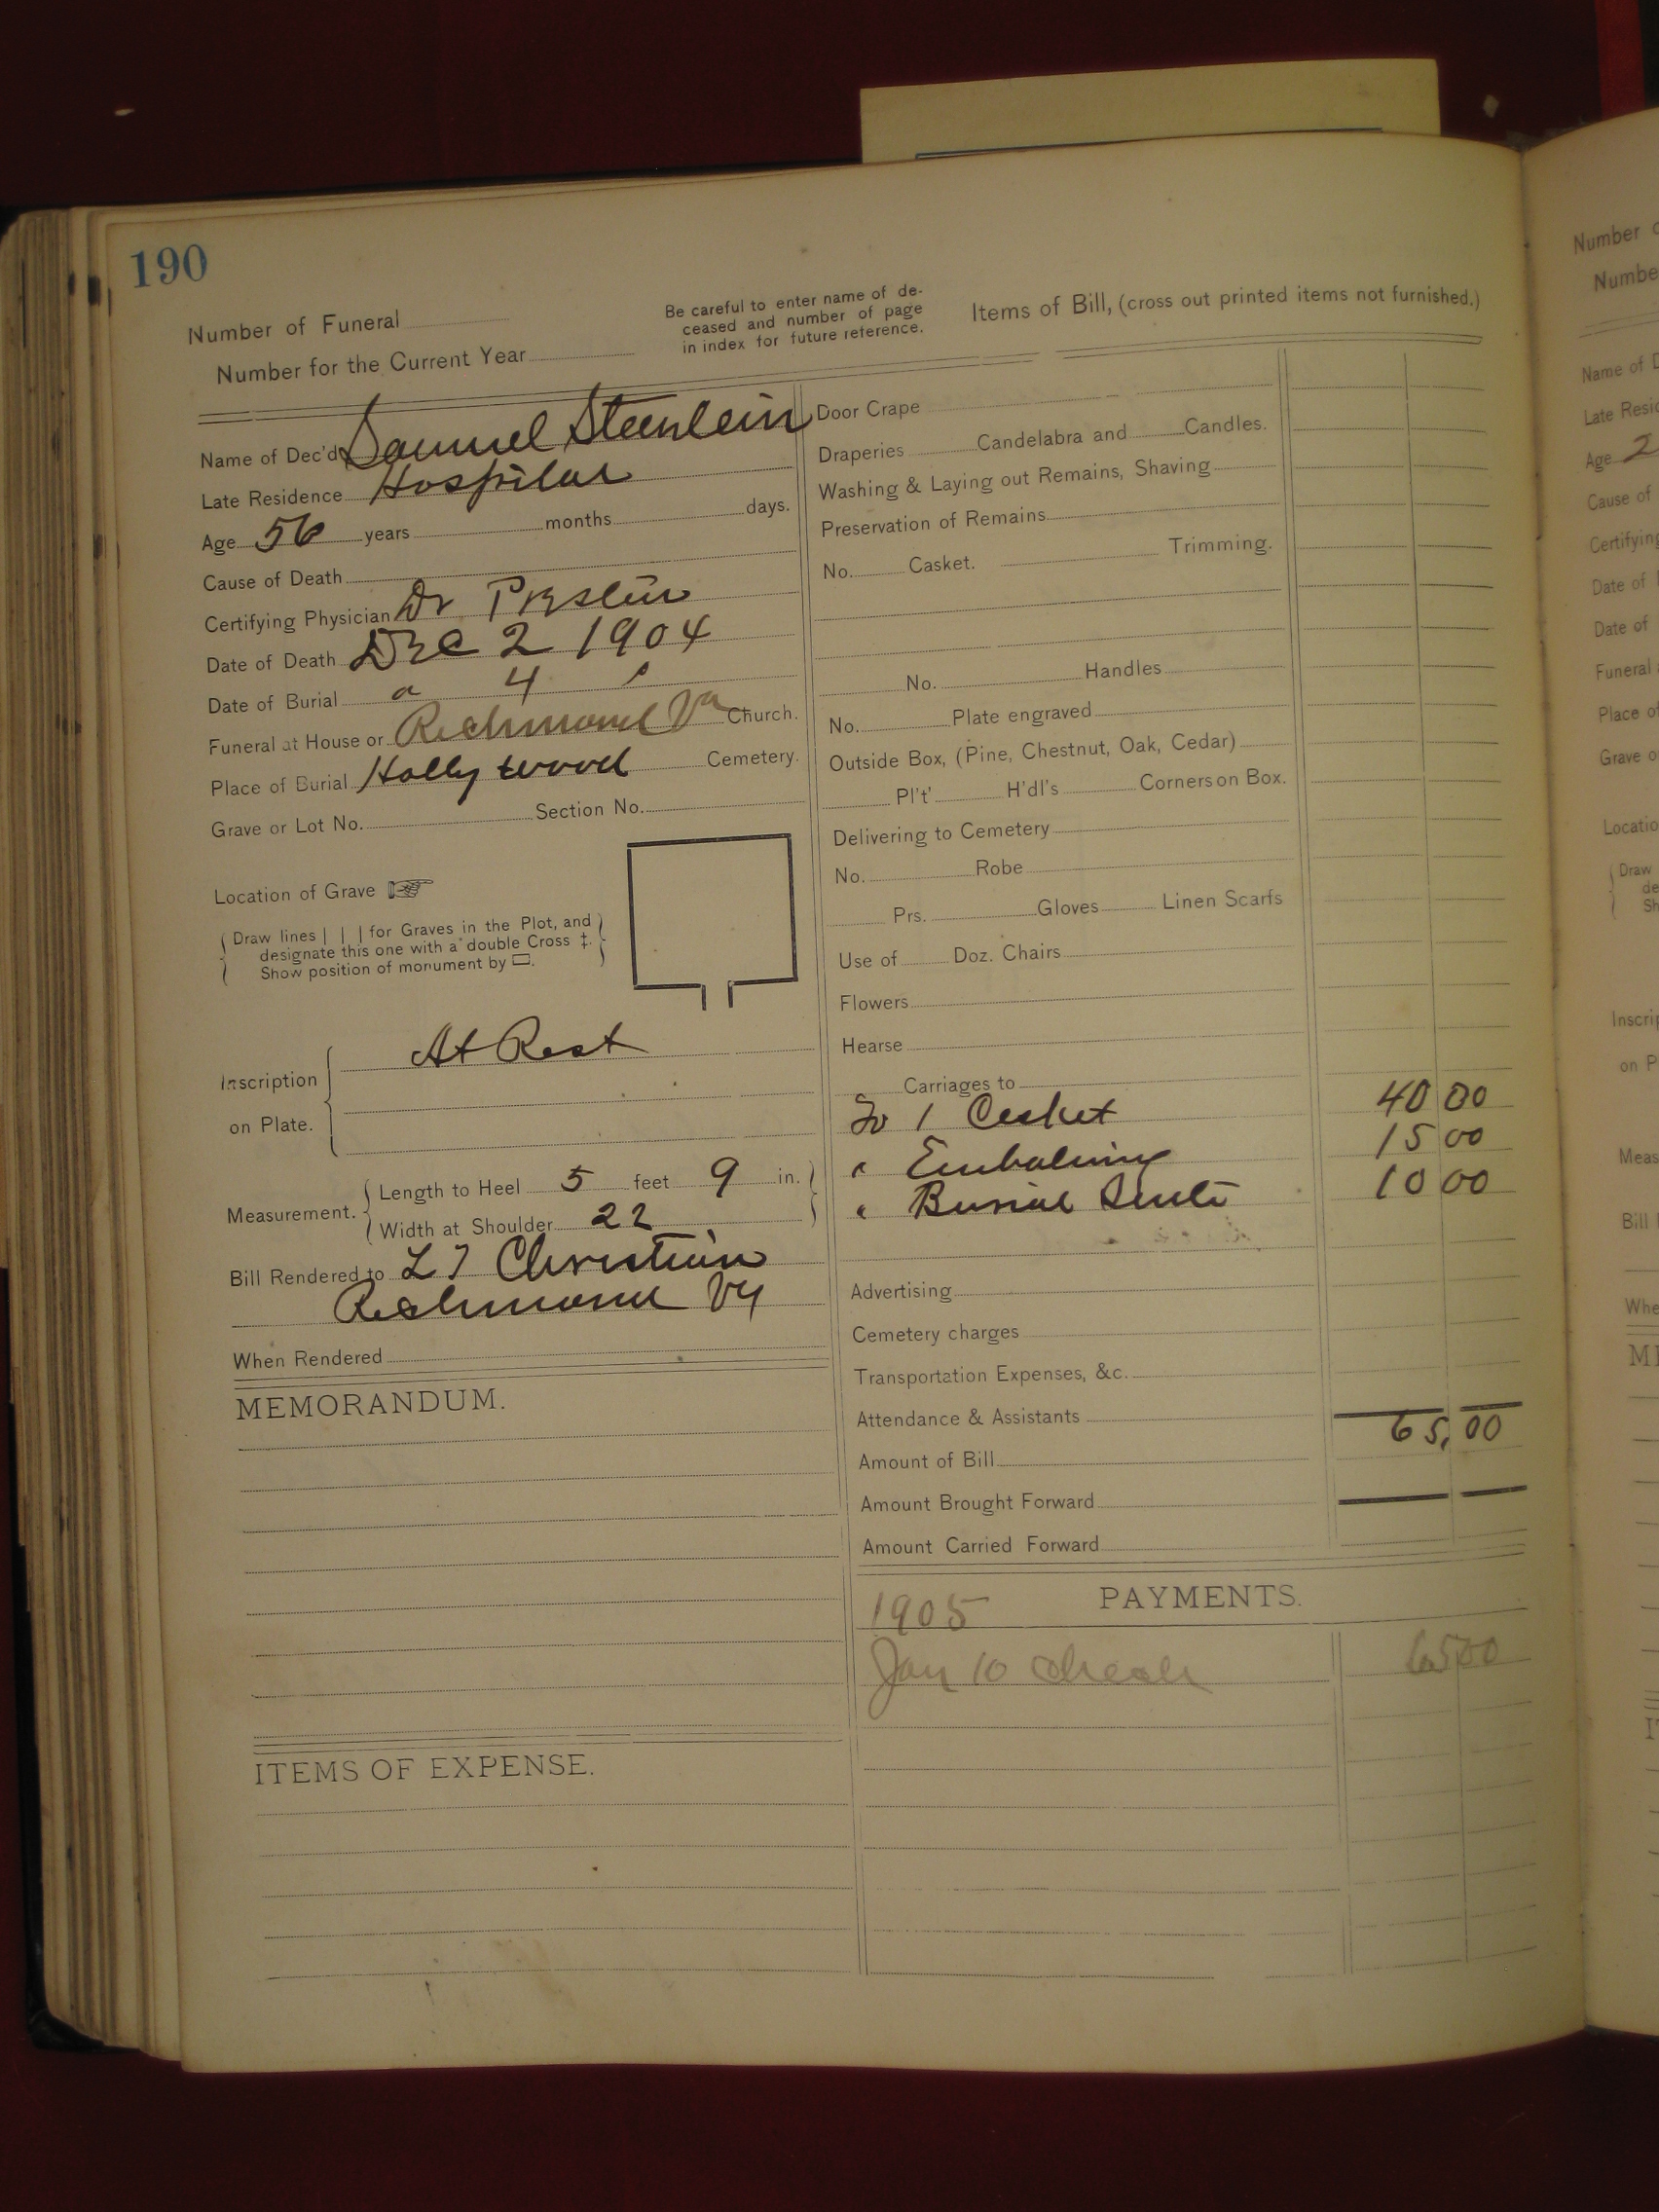 190
Number of Funeral
Number for the Current Year
Be careful to enter name of de-
ceased and number of page
in index for future reference.
Items of Bill, (cross out printed items not furnished.)
Name of Dec'd Samuel Steenlein
Late Residence Hospital
Age 56 years months days.
Cause of Death
Certifying Physician Dr Preston
Date of Death Dec 2 1904
Date of Burial " 4 "
Funeral at House or Richmond Va Church.
Place of Burial Hollywood Cemetery.
Grave or Lot No. Section No.
Location of Grave
Draw lines | | | for Graves in the Plot, and
designate this one with a double Cross ‡.
Show position of monument by ▭.
Inscription
on Plate.
At Rest
Measurement.
Length to Heel 5 feet 9 in.
Width at Shoulder 22
Bill Rendered to L T Christian
Richmond Va
When Rendered
MEMORANDUM.
ITEMS OF EXPENSE.
Door Crape
Draperies Candelabra and Candles.
Washing & Laying out Remains, Shaving
Preservation of Remains
No. Casket. Trimming.
No. Handles
No. Plate engraved
Outside Box, (Pine, Chestnut, Oak, Cedar)
Pl't' H'dl's Corners on Box.
Delivering to Cemetery
No. Robe
Prs. Gloves Linen Scarfs
Use of Doz. Chairs
Flowers
Hearse
Carriages to
To 1 Casket 40 00
" Embalming 15 00
" Burial Suite 10 00
Advertising
Cemetery charges
Transportation Expenses, &c.
Attendance & Assistants
Amount of Bill 65.00
Amount Brought Forward
Amount Carried Forward
1905 PAYMENTS.
Jan 10 check 65 00
Number o
Numbe
Name of D
Late Resid
Age 2
Cause of
Certifying
Date of
Date of
Funeral
Place of
Grave o
Locatio
Draw
de
Sh
Inscrip
on P
Meas
Bill
Whe